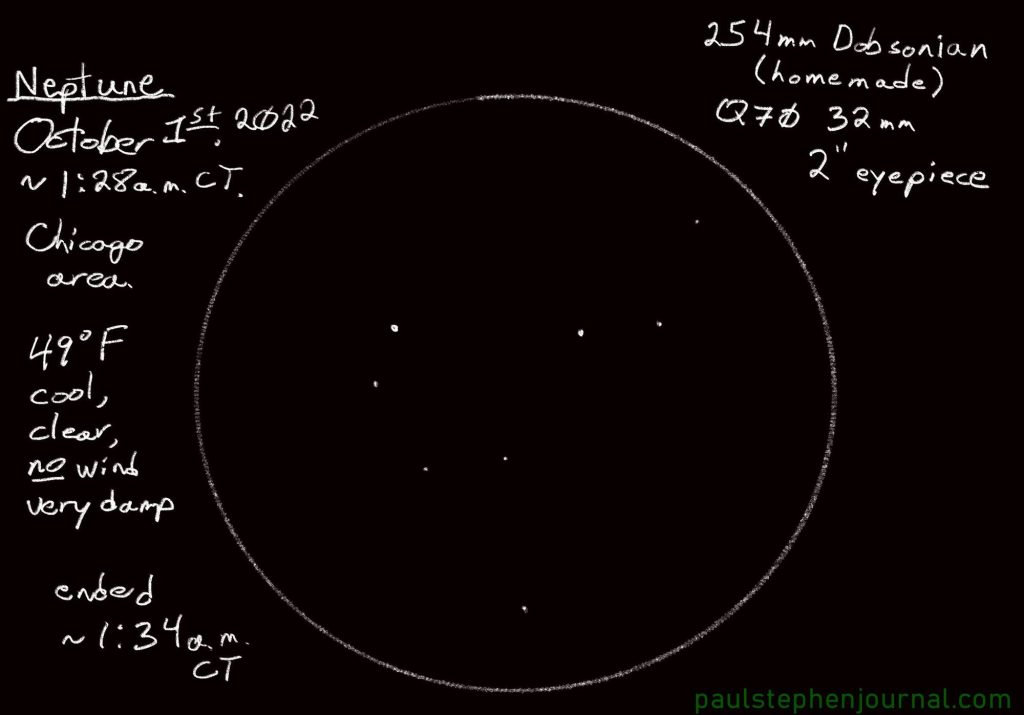 Neptune
October 1st. 2022
~ 1:28 a.m. CT.
Chicago
area.
49°F
cool,
clear,
no wind
very damp
ended
~ 1:34 a.m.
CT
254mm Dobsonian
(homemade)
Q70 32mm
2" eyepiece
paulstephenjournal.com